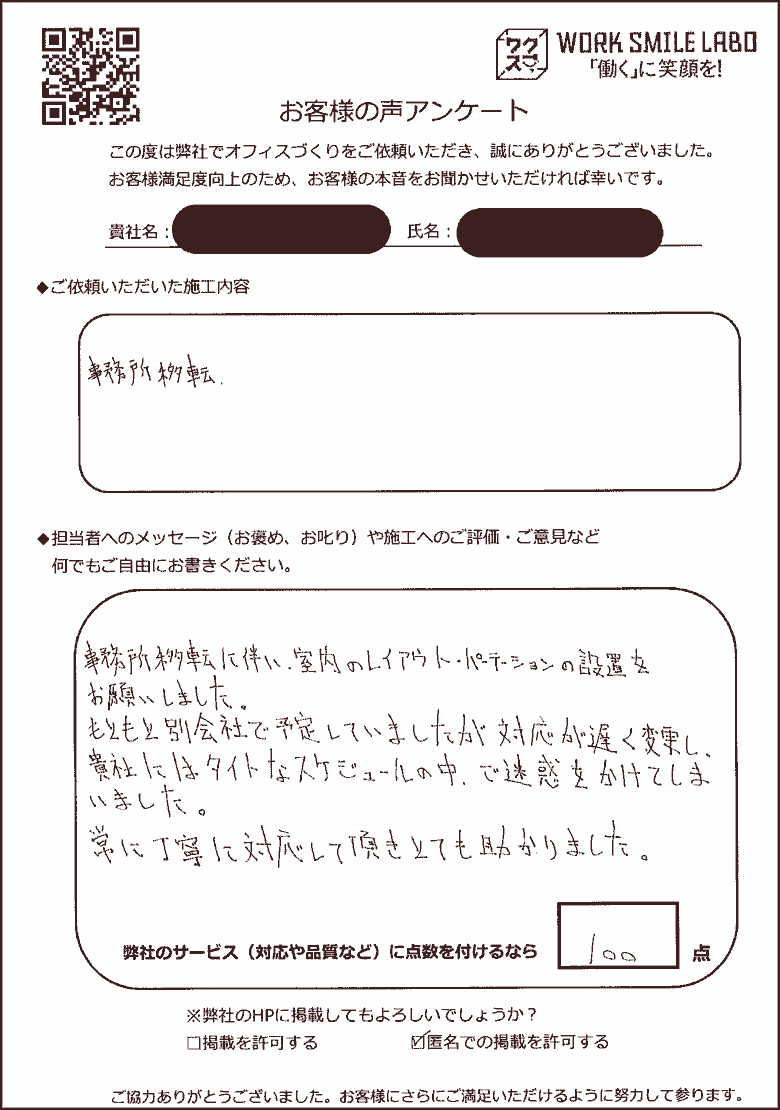 ワクスマ
WORK SMILE LABO
「働く」に笑顔を!
お客様の声アンケート
この度は弊社でオフィスづくりをご依頼いただき、誠にありがとうございました。
お客様満足度向上のため、お客様の本音をお聞かせいただければ幸いです。
貴社名： 氏名：
◆ご依頼いただいた施工内容
事務所移転.
◆担当者へのメッセージ（お褒め、お叱り）や施工へのご評価・ご意見など
何でもご自由にお書きください。
事務所移転に伴い、室内のレイアウト・パーテーションの設置を
お願いしました。
もともと別会社で予定していましたが対応が遅く変更し、
貴社にはタイトなスケジュールの中、ご迷惑をかけてしま
いました。
常に丁寧に対応して頂きとても助かりました。
弊社のサービス（対応や品質など）に点数を付けるなら 100 点
※弊社のHPに掲載してもよろしいでしょうか？
□掲載を許可する ☑匿名での掲載を許可する
ご協力ありがとうございました。お客様にさらにご満足いただけるように努力して参ります。